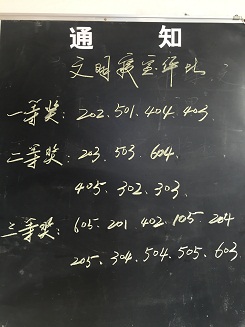 通 知
文明寝室评比：
一等奖：202、501、404、403
二等奖：203、503、604、
405、302、303、
三等奖：605、201、402、105、204
205、304、504、505、603、